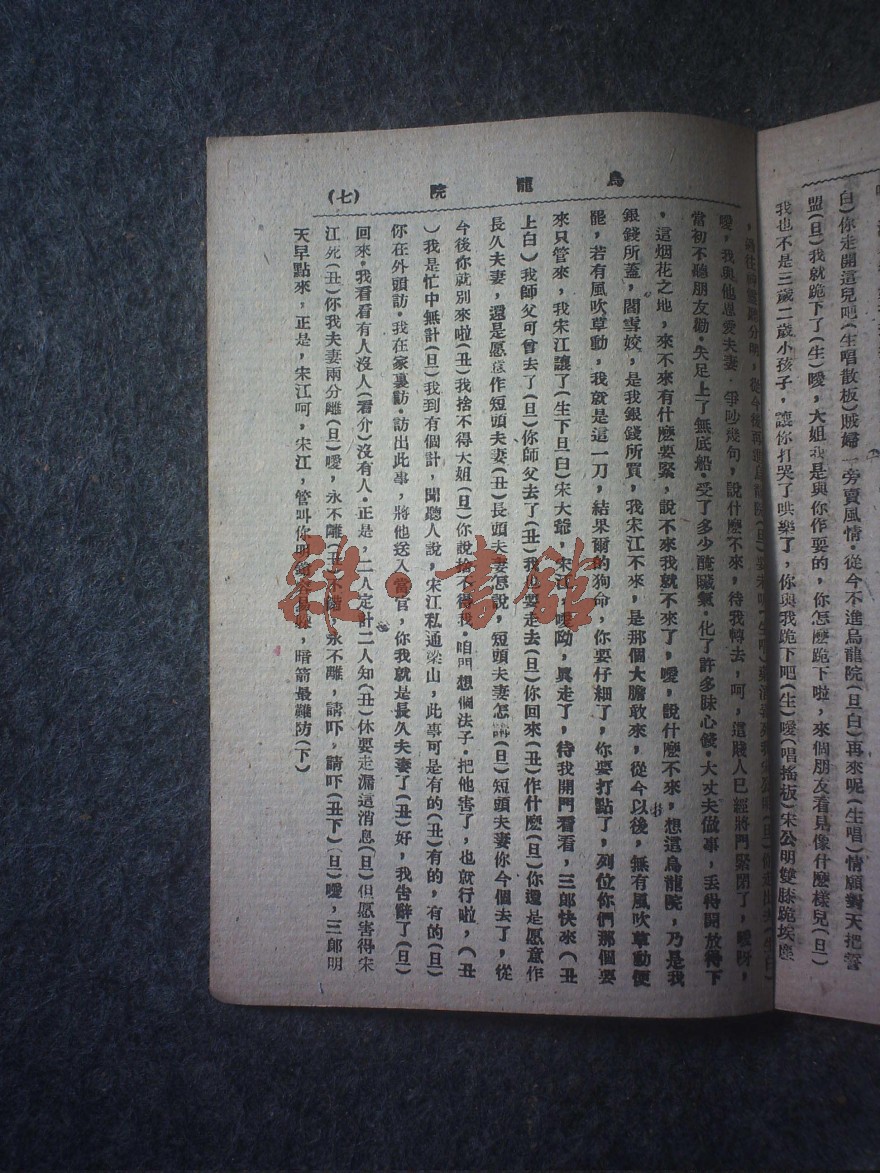 白)你走開這兒吧(生唱散板)賊婦一旁賣風情·從今不進烏龍院(旦白)再來呢(生唱)情願對天把誓
盟(旦)我就跪下了(生)噯,大姐我是與你作耍的,你怎麽跪下啦,來個朋友看見像什麽樣兒(旦)
我也不是三歲二歲小孩子,讓你打哭了哄樂了,你與我跪下吧(生)噯(唱搖板)宋公明雙膝跪埃塵
烏龍院 (七)
噯,我與他恩愛夫妻·爭吵幾句,說什麽不來,待我轉去,呵,這賤人已經將門緊閉了,噯呀,
當初不聽朋友勸·失足上了無底船·受了多少醃臢氣·化了許多昧心錢·大丈夫做事,丢得開放得下
,這烟花之地,來不來有什麽要緊,說不來我就不來了,噯,說什麽不來,想這烏龍院,乃是我
銀錢所蓋,閻雪姣,是我銀錢所買,我宋江不來,是那個大膽敢來,從今以後,無有風吹草動便
罷,若有風吹草動,我就是這一刀,結果爾的狗命,你要仔細了,你要打點了,列位你們那個要
來只管來,我宋江讓了(生下旦白)宋大爺,宋江,噯呦,眞走了,待我開門看看,三郎快來(丑
上白)我師父可曾去了(旦)你師父去了(丑)我也要走去(旦)你回來(丑)作什麽(旦)你還是愿意作
長久夫妻,還是愿意作短頭夫妻(丑)長頭夫妻怎説,短頭夫妻怎講(旦)短頭夫妻你今個去了,從
今後你就別來啦(丑)我捨不得大姐(旦)你說捨不得我·咱門想個法子·把他害了,也就行啦,(丑
)我是忙中無計(旦)我到有個計,聞聽人說,宋江私通梁山,此事可是有的(丑)有的,有的(旦)
你在外頭訪·我在家裏訪·訪出此事,將他送入當官,你我就是長久夫妻了(丑)好,我告辭了(旦)
回來·我看看有人沒人(看介)沒有人·正是,二人定計二人知(丑)休要走漏這消息(旦)但愿害得宋
江死(丑)你我夫妻兩分離(旦)噯,永不離(丑)不錯,永不離,請吓,請吓(丑下)(旦)噯,三郎明
天早點來,正是,宋江呵,宋江,管叫你明鎗容易躱,暗箭最難防(下)
雜·書館